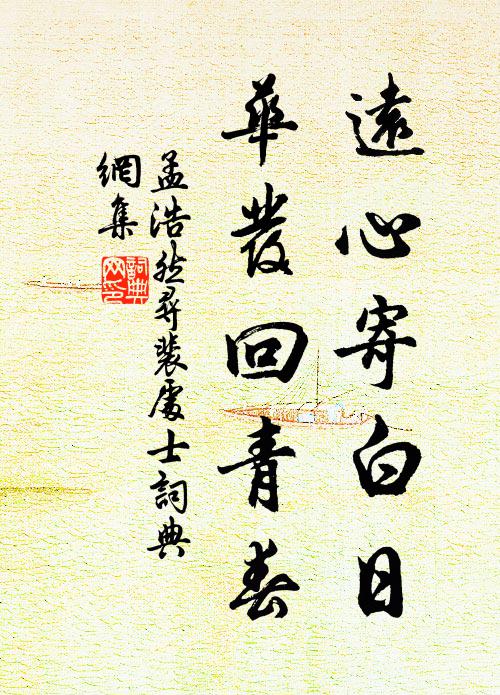 遠心寄白日
華發回青春
孟浩然尋裴處士詞典
網集
詞典
网